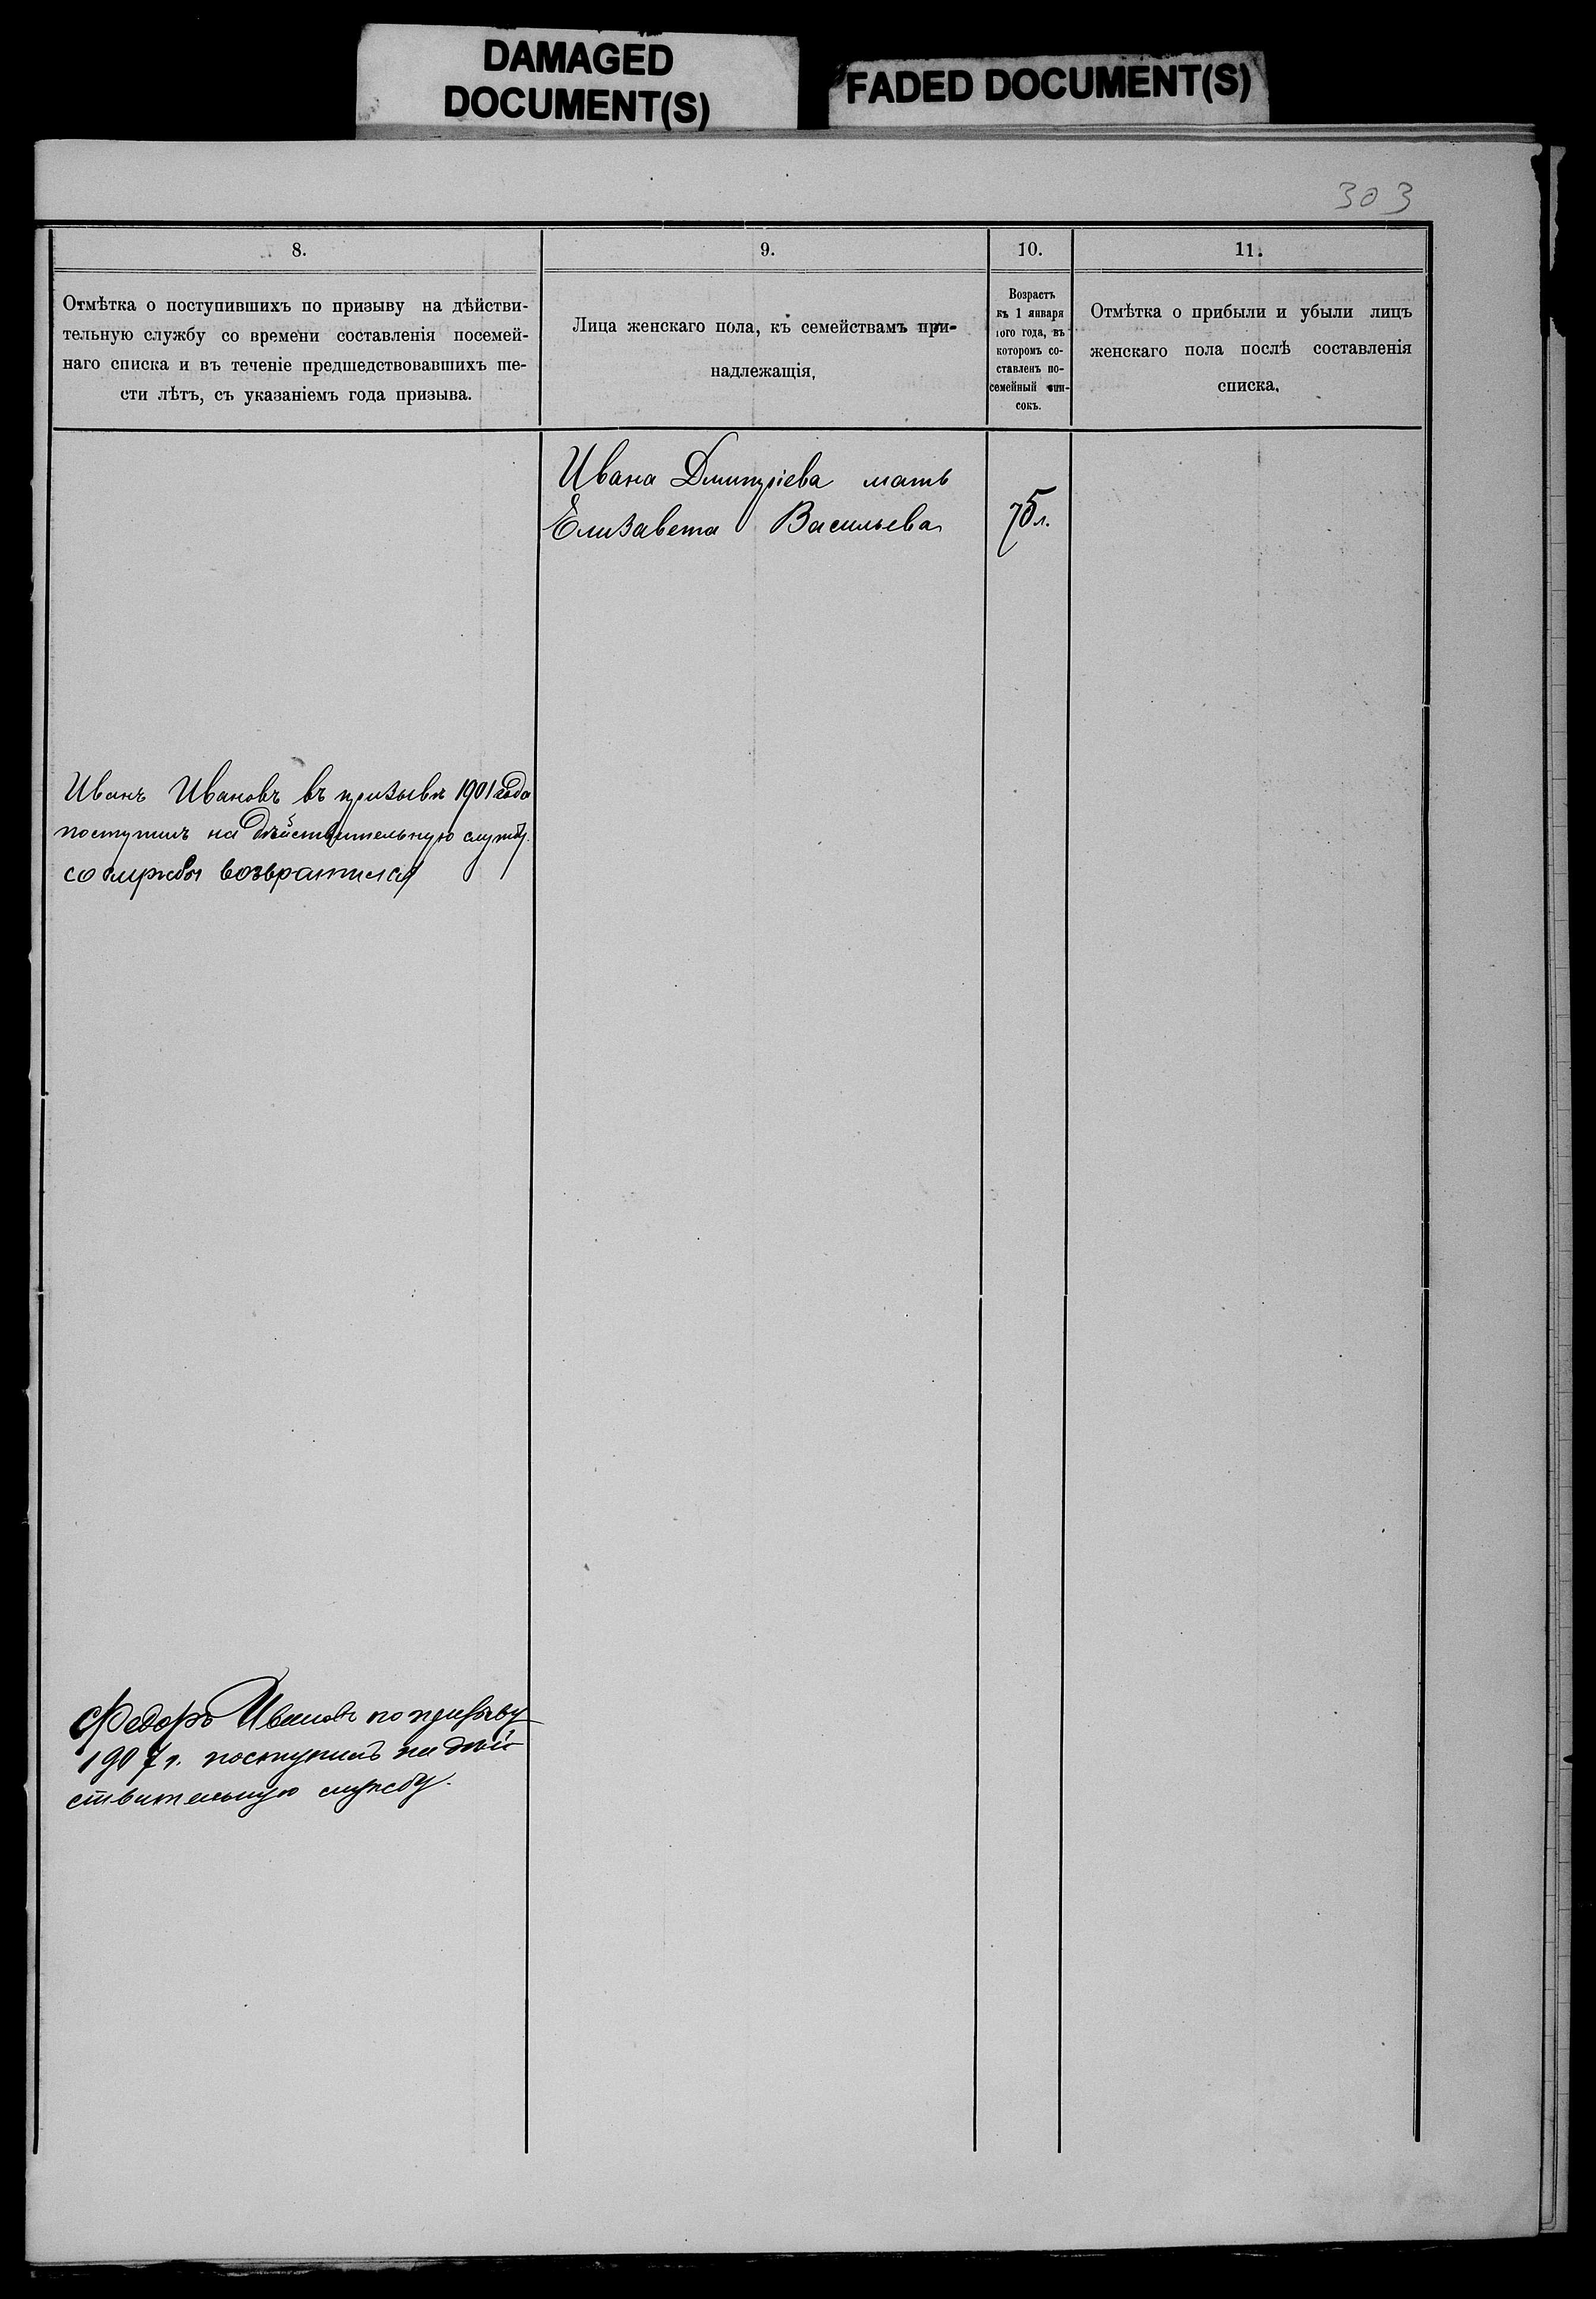 DAMAGED
DOCUMENT(S)
FADED DOCUMENT(S)
303
8.
Отмѣтка о поступившихъ по призыву на дѣйстви-
тельную службу со времени составленія посемей-
наго списка и въ теченіе предшедствовавшихъ ше-
сти лѣтъ, съ указаніемъ года призыва.
9.
Лица женскаго пола, къ семействамъ при-
надлежащія,
10.
Возрастъ
къ 1 января
того года, въ
которомъ со-
ставленъ по-
семейный спи-
сокъ.
11.
Отмѣтка о прибыли и убыли лицъ
женскаго пола послѣ составленія
списка.
Ивана Дмитріева мать
Елизавета Васильева
75 л.
Иванъ Ивановъ въ призывъ 1901 года
поступилъ на дѣйствительную службу.
со службы возвратился
Федоръ Ивановъ по призыву
1907 г. поступилъ на дѣй
ствительную службу.